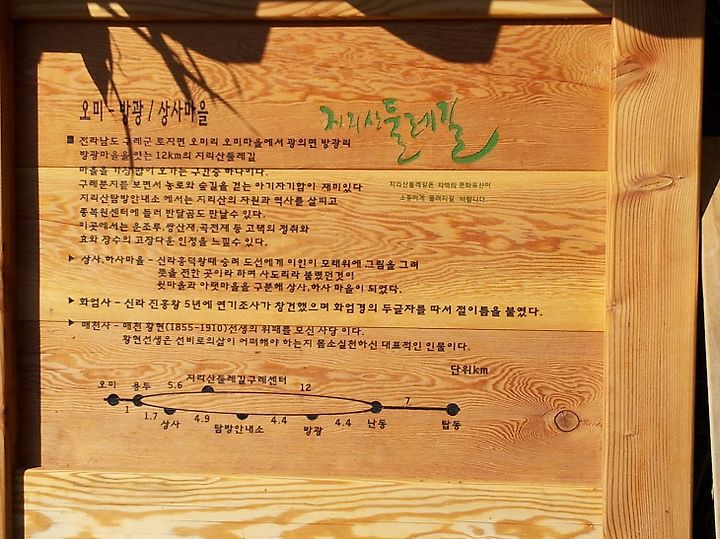 오미 - 방광 / 상사마을
지리산둘레길
■ 전라남도 구례군 토지면 오미리 오미마을에서 광의면 방광리
방광마을을 잇는 12km의 지리산둘레길
마을을 가장 많이 오가는 구간중 하나이다.
구례분지를 보면서 농로와 숲길을 걷는 아기자기함이 재미있다
지리산탐방안내소 에서는 지리산의 자원과 역사를 살피고
종복원센터에 들러 반달곰도 만날수 있다.
이곳에서는 운조루,쌍산재,곡전재 등 고택의 정취와
효와 장수의 고장다운 인정을 느낄수 있다.
지리산둘레길은 지역의 문화유산이
소중하게 물려지길 바랍니다.
▶ 상사,하사마을 - 신라흥덕왕때 승려 도선에게 이인이 모래위에 그림을 그려
뜻을 전한 곳이라 하여 사도리라 불렸던것이
윗마을과 아랫마을을 구분해 상사,하사 마을이 되었다.
▶ 화엄사 - 신라 진흥왕 5년에 연기조사가 창건했으며 화엄경의 두글자를 따서 절이름을 붙였다.
▶ 매천사 - 매천 황현(1855-1910)선생의 위패를 모신 사당 이다.
황현선생은 선비로의삶이 어떠해야 하는지 몸소실천하신 대표적인 인물이다.
단위km
오미 용두 5.6 지리산둘레길구례센터 12 7
1 1.7 상사 4.9 탐방안내소 4.4 방광 4.4 난동 탑동